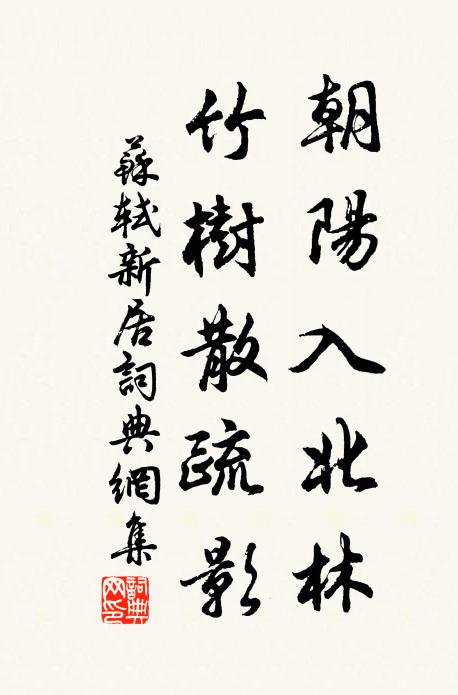 朝陽入北林
竹樹散疏影
蘇軾新居詞典網集
詞典网印